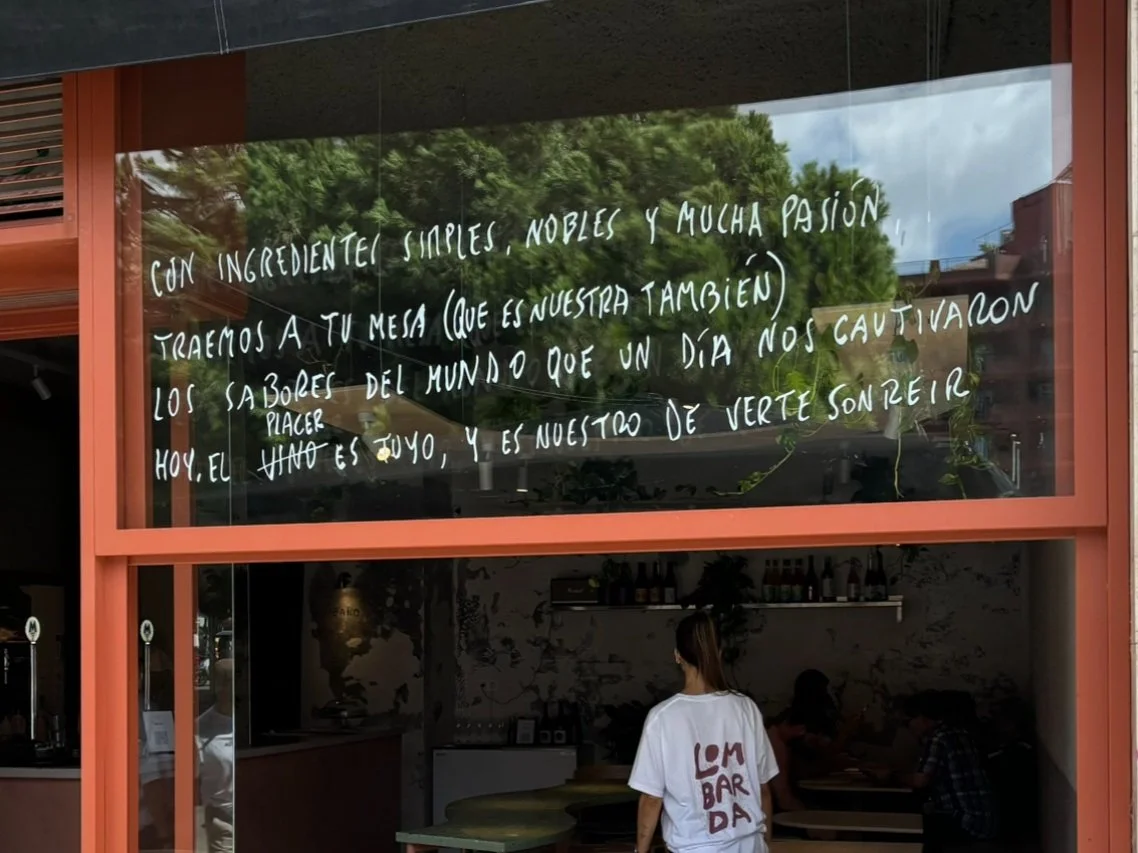 CON INGREDIENTES SIMPLES, NOBLES Y MUCHA PASIÓN,
TRAEMOS A TU MESA (QUE ES NUESTRA TAMBIÉN)
LOS SABORES DEL MUNDO QUE UN DÍA NOS CAUTIVARON
PLACER
HOY, EL VINO ES TUYO, Y ES NUESTRO DE VERTE SONREIR
LOM
BAR
DA